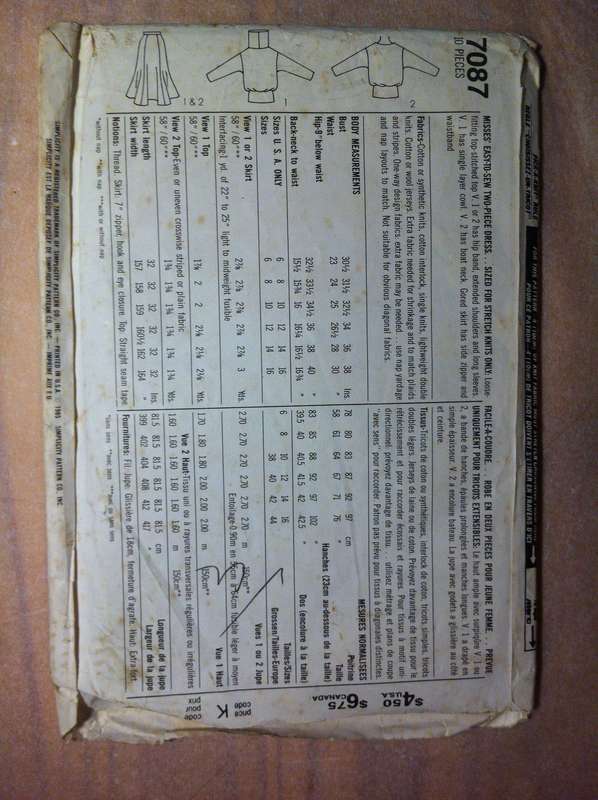 7087
10 PIECES
$4.50
U.S.A.
$6.75
CANADA
K
price code
code prix
1 & 2
1
2
MISSES' EASY-TO-SEW TWO-PIECE DRESS . . SIZED FOR STRETCH KNITS ONLY: Loose-
fitting top-stitched top V. 1 or 2 has hip band, extended shoulders and long sleeves.
V. 1 has single layer cowl. V. 2 has boat neck. Gored skirt has side zipper and
waistband.
Fabrics-Cotton or synthetic knits, cotton interlock, single knits, lightweight double
knits. Cotton or wool jerseys. Extra fabric needed for shrinkage and to match plaids
and stripes. One-way design fabrics, extra fabric may be needed . . use nap yardage
and nap layouts to match. Not suitable for obvious diagonal fabrics.
BODY MEASUREMENTS
Bust 30½ 31½ 32½ 34 36 38 Ins
Waist 23 24 25 26½ 28 30 "
Hip-9" below waist 32½ 33½ 34½ 36 38 40 "
Back-neck to waist 15½ 15¾ 16 16¼ 16½ 16¾ "
Sizes U. S. A. ONLY 6 8 10 12 14 16
Sizes 6 8 10 12 14 16
View 1 or 2 Skirt
58"/60"*** 2⅞ 2⅞ 2⅞ 2⅞ 2⅞ 3 Yds.
Interfacing1 yd. of 22" to 25" light to midweight fusible
View 1 Top
58"/60"*** 1⅞ 2 2 2¼ 2¼ 2¼ Yds.
View 2 Top-Even or uneven crosswise striped or plain fabric
58"/60"*** 1¾ 1¾ 1¾ 1¾ 1¾ 1¾ Yds.
Skirt length 32 32 32 32 32 32 Ins
Skirt width 157 158 159 160½ 162 164 "
Notions: Thread. Skirt: 7" zipper, hook and eye closure Top: Straight seam tape
*without nap **with nap ***with or without nap
FACILE-A-COUDRE . . ROBE EN DEUX PIECES POUR JEUNE FEMME . . PREVUE
UNIQUEMENT POUR TRICOTS EXTENSIBLES: Le haut ample avec surpiqûre V. 1 ou
2, a bande de hanches, épaules prolongées et manches longues. V. 1 a drapé en
simple épaisseur. V. 2 a encolure bateau. La jupe avec godets a glissière au côté
et ceinture.
Tissus-Tricots de coton ou synthétiques, interlock de coton, tricots simples, tricots
doubles légers. Jerseys de laine ou de coton. Prévoyez davantage de tissu pour le
rétrécissement et pour raccorder écossais et rayures. Pour tissus à motif uni-
directionnel, prévoyez davantage de tissu . . utilisez métrage et plans de coupe
'avec sens' pour raccorder. Patron pas prévu pour tissus à diagonales distinctes.
MESURES NORMALISEES
78 80 83 87 92 97 cm Poitrine
58 61 64 67 71 76 " Taille
83 85 88 92 97 102 " Hanches (23cm au-dessous de la taille)
39.5 40 40.5 41.5 42 42.5 " Dos (encolure à la taille)
6 8 10 12 14 16 Tailles/Sizes
38 40 42 44 Grossen/Tailles-Europe
Vues 1 ou 2 Jupe
2.70 2.70 2.70 2.70 2.70 2.70 m 150cm**
Entoilage-0.90m en 56cm à 64cm fusible léger à moyen
Vue 1 Haut
1.70 1.80 1.80 2.00 2.00 2.00 m 150cm**
Vue 2 Haut-Tissu uni ou à rayures transversales régulières ou irrégulières
1.60 1.60 1.60 1.60 1.60 1.60 m 150cm**
81.5 81.5 81.5 81.5 81.5 81.5 cm Longueur de la jupe
399 402 404 408 412 417 " Largeur de la jupe
Fournitures: Fil. Jupe: Glissière de 18cm, fermeture d'agrafe. Haut: Extra-fort.
SIMPLICITY IS A REGISTERED TRADEMARK OF SIMPLICITY PATTERN CO. INC. — PRINTED IN U.S.A. © 1985 SIMPLICITY PATTERN CO. INC.
SIMPLICITY EST LA MARQUE DEPOSEE DE SIMPLICITY PATTERN CO. INC. — IMPRIME AUX E U